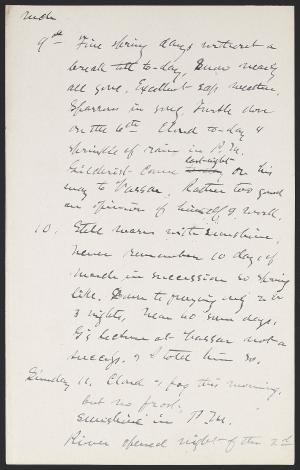 9th Fine spring days without a
break till to-day, Snow nearly
all gone, Excellent sap weather,
Sparrows in song, Turtle dove
on the 6th Cloud to-day &
sprinkle of rain in P.M.
Gilchrist came last night on his
way to Vassar, Rather too good
an opinion of himself & work.
10. Still warm with sunshine,
never remember 10 days of
March in succession so spring
like. Down to freezing only 2 or
3 nights, near no some days.
G's lecture at Vassar not a
success. & I told him so.
Sunday 11. Cloud & fog this morning,
but no frost.
Sunshine in P.M.
River opened night of the 2nd